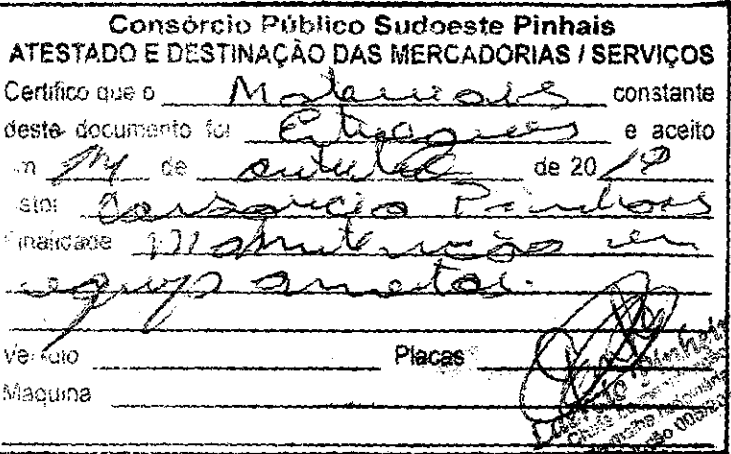 Consórcio Público Sudoeste Pinhais
ATESTADO E DESTINAÇÃO DAS MERCADORIAS / SERVIÇOS
Certifico que o Materiais constante
deste documento foi Entregues e aceito
de outubro de 20
Consorcio Pinhais
Finalidade Manutenção em
equipamentos.
Veículo Placas
Maquina